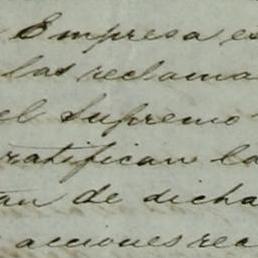 Empresa es
las reclama
el Supremo
ratifican la
an de dicha
acciones rec